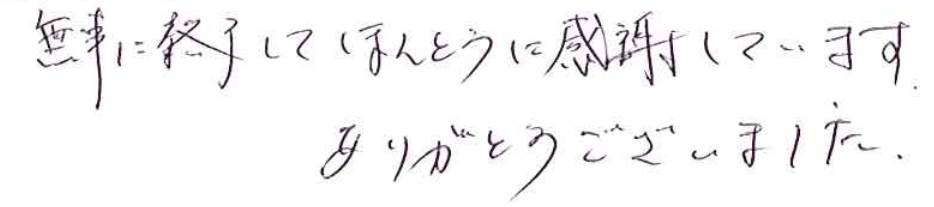 無事に終了してほんとうに感謝しています.
ありがとうございました.